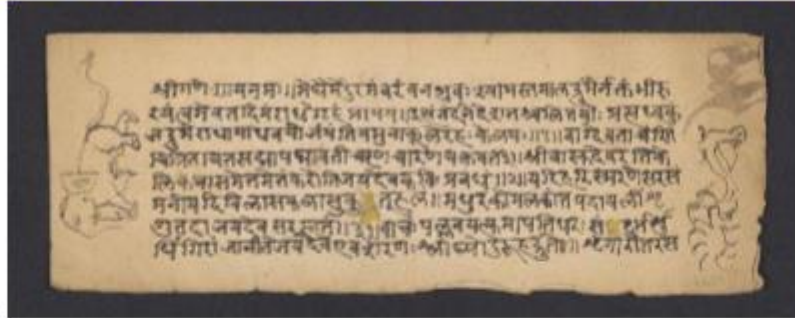 श्रीगणेशायनमः॥मेघैर्मेदुरमंबरंवनभुवःश्यामास्तमालद्रुमैर्नक्तंभीरु
रयंत्वमेवतदिमंराधेगृहंप्रापय॥इत्थंनंदनिदेशतश्चलितयोःप्रत्यध्वकु
जद्रुमंराधामाधवयोर्जयंतियमुनाकूलेरहःकेलयः॥१॥वाग्देवताचरित
चित्रितचित्तसद्मापद्मावतीचरणचारणचक्रवर्ती॥श्रीवासुदेवरतिके
लिकथासमेतमेतंकरोतिजयदेवकविःप्रबंधं॥२॥यदिहरिस्मरणेसरसं
मनोयदिविलासकलासुकुतूहलं॥मधुरकोमलकांतपदावलींशृ
णुतदाजयदेवसरस्वतीं॥३॥वाचःपल्लवयत्युमापतिधरःसंदर्भशु
द्धिंगिरांजानीतेजयदेवएवशरणःश्लाघ्योदुरूहद्रुते॥शृंगारोत्तरस